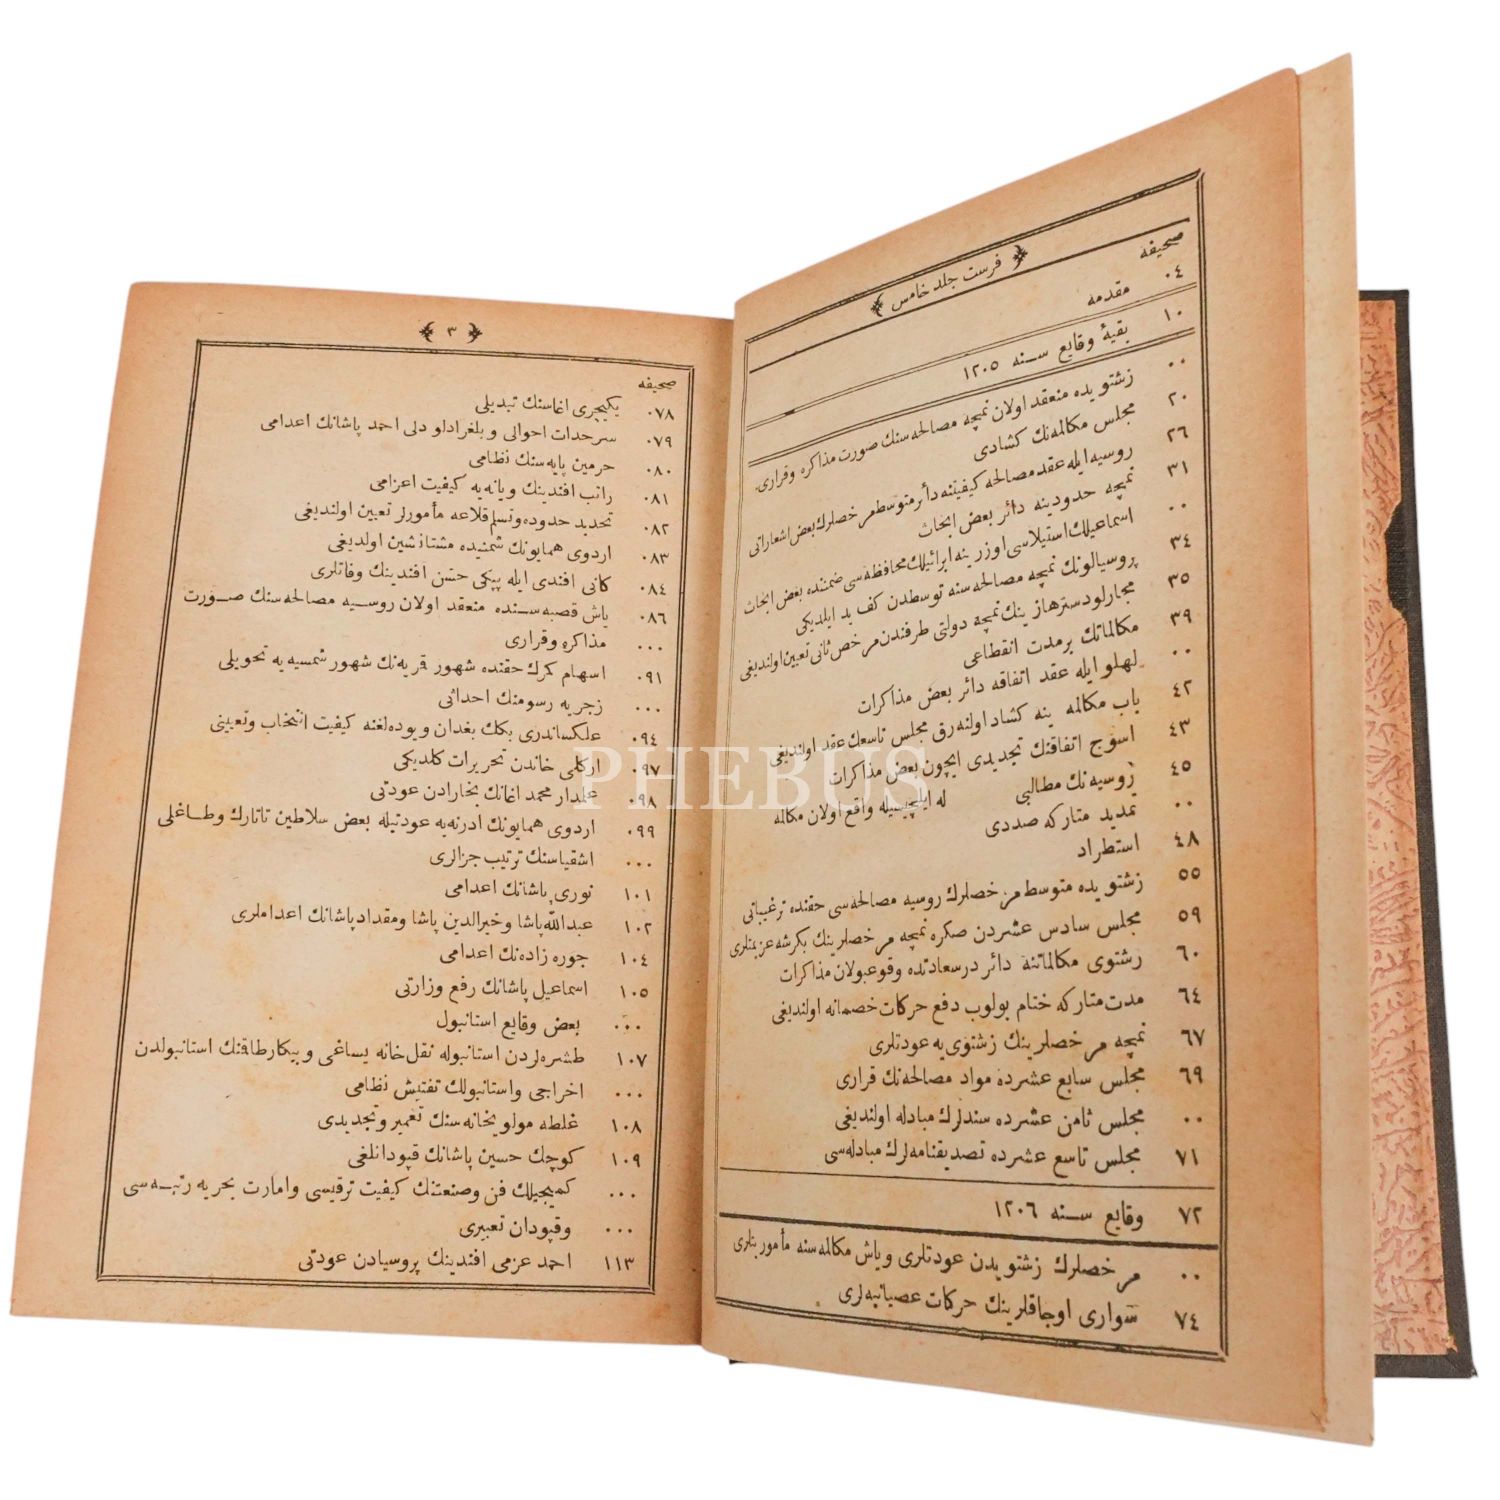 فرست جلد خامس
صحیفه
٠٤ مقدمه
١٠ بقیهٔ وقایع سـنه ١٢٠٥
٠٠ زشتویده منعقد اولان نمچه مصالحه‌سنك صورت مذاکره وقراری
٢٠ مجلس مکالمه‌نك کشادی
٢٦ روسیه ایله عقد مصالحه کیفیتنه دائر متوسط مرخصلرك بعض اشعاراتی
٣١ نمچه حدودینه دائر بعض ابحاث
٠٠ اسماعیلك استیلاسی اوزرینه ابرائیلك محافظه‌سی ضمننده بعض ابحاث
٣٤ پروسیالونك نمچه مصالحه‌سنه توسطدن کف ید ایلدیکی
٣٥ مجارلودسترهازینك نمچه دولتی طرفندن مرخص ثانی تعیین اولندیغی
٣٩ مکالماتك برمدت انقطاعی
٠٠ لهلو ایله عقد اتفاقه دائر بعض مذاکرات
٤٢ باب مکالمه ینه کشاد اولنه‌رق مجلس تاسعك عقد اولندیغی
٤٣ اسوج اتفاقنك تجدیدی ایچون بعض مذاکرات
٤٥ روسیه‌نك مطالبی له ایلچیسیله واقع اولان مکالمه
٠٠ تمدید متارکه صددی
٤٨ استطراد
٥٥ زشتویده متوسط مرخصلرك روسیه مصالحه‌سی حقنده ترغیباتی
٥٩ مجلس سادس عشردن صکره نمچه مرخصلرینك بکرشه عزیمتلری
٦٠ زشتوی مکالماتنه دائر درسعادتده وقوعبولان مذاکرات
٦٤ مدت متارکه ختام بولوب دفع حرکات خصمانه اولندیغی
٦٧ نمچه مرخصلرینك زشتوی‌یه عودتلری
٦٩ مجلس سابع عشرده مواد مصالحه‌نك قراری
٠٠ مجلس ثامن عشرده سندلرك مبادله اولندیغی
٧١ مجلس تاسع عشرده تصدیقنامه‌لرك مبادله‌سی
٧٢ وقایع سـنه ١٢٠٦
٠٠ مرخصلرك زشتویدن عودتلری ویاش مکالمه‌سنه مأموریتلری
٧٤ سواری اوجاقلرینك حرکات عصیانیه‌لری
٣
صحیفه
٠٧٨ یکیچری اغاسنك تبدیلی
٠٧٩ سرحدات احوالی و بلغرادلو دلی احمد پاشانك اعدامی
٠٨٠ حرمین پایه‌سنك نظامی
٠٨١ راتب افندینك ویانه‌یه کیفیت اعزامی
٠٨٢ تحدید حدوده وتسلم قلاعه مأمورلر تعیین اولندیغی
٠٨٣ اردوی همایونك شمنیده مشتانشین اولدیغی
٠٨٤ کانی افندی ایله پیکی حسن افندینك وفاتلری
٠٨٦ یاش قصبه‌سـنده منعقد اولان روسـیه مصالحه‌سنك صـورت
٠٠٠ مذاکره وقراری
٠٩١ اسهام کمرك حقنده شهور قریه‌نك شهور شمسیه‌یه تحویلی
٠٠٠ زجریه رسومنك احداثی
٠٩٤ علکساندری بکك بغدان ویوده‌لغنه کیفیت انتخاب وتعیینی
٠٩٧ ارکلی خاندن تحریرات کلدیکی
٠٩٨ علمدار محمد اغانك بخارادن عودتی
٠٩٩ اردوی همایونك ادرنه‌یه عودتیله بعض سلاطین تاتارك وطـاغلی
٠٠٠ اشقیاسنك ترتیب جزالری
١٠١ نوری پاشانك اعدامی
١٠٢ عبدالله پاشا وخیرالدین پاشا ومقداد پاشانك اعداملری
١٠٤ جوره زاده‌نك اعدامی
١٠٥ اسماعیل پاشانك رفع وزارتی
٠٠٠ بعض وقایع استانبول
١٠٧ طشره‌لردن استانبوله نقل خانه یساغی وبیکار طاقنك استانبولدن
٠٠٠ اخراجی واستانبولك تفتیش نظامی
١٠٨ غلطه مولویخانه‌سنك تعمیر وتجدیدی
١٠٩ کوچك حسین پاشانك قپودانلغی
٠٠٠ کمیجیلك فن وصنعتنك کیفیت ترقیسی وامارت بحریه رتبـه‌سی
٠٠٠ وقپودان تعبیری
١١٣ احمد عزمی افندینك پروسیادن عودتی
PHEBUS